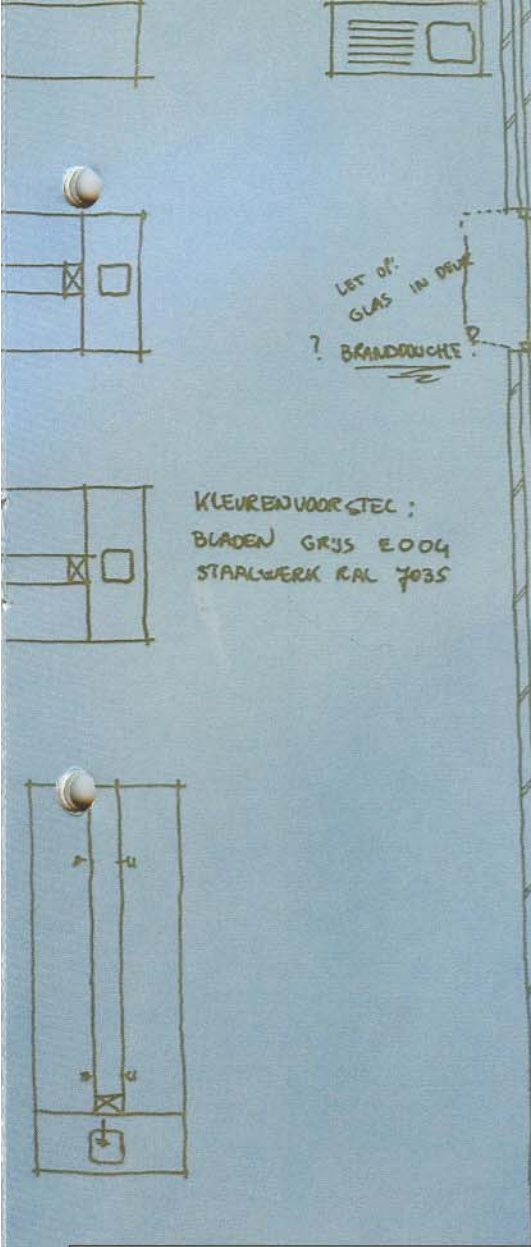 LET OP:
GLAS IN DEUR
? BRANDDOUCHE?
KLEURENVOORSTEL:
BLADEN GRIJS E004
STAALWERK RAL 7035